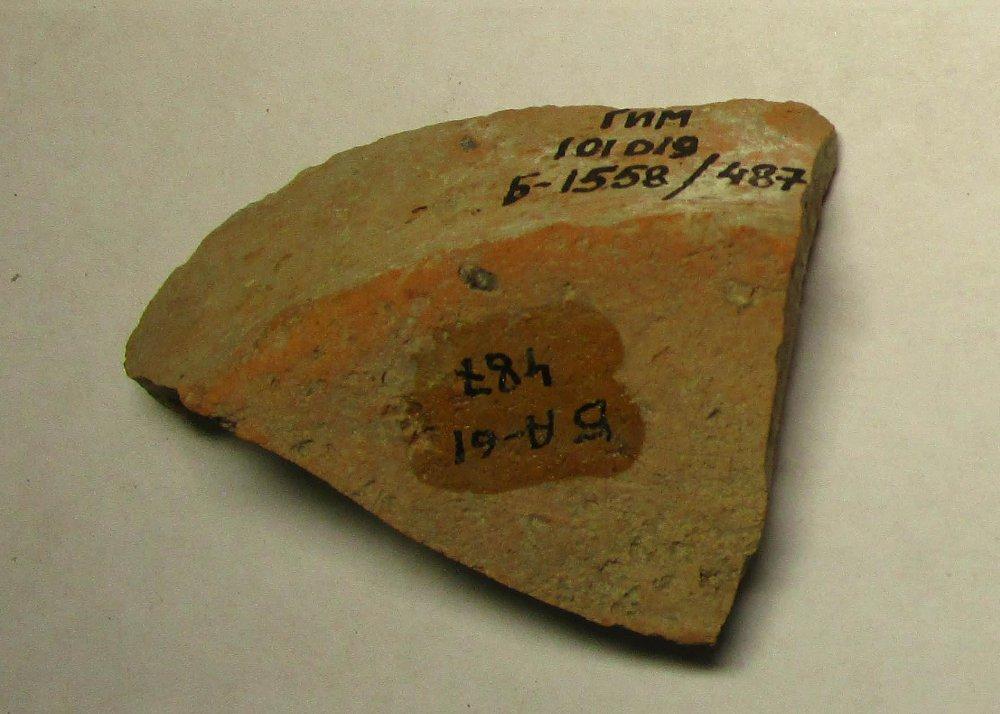 ГИМ
101019
Б-1558/487
БА-61
487